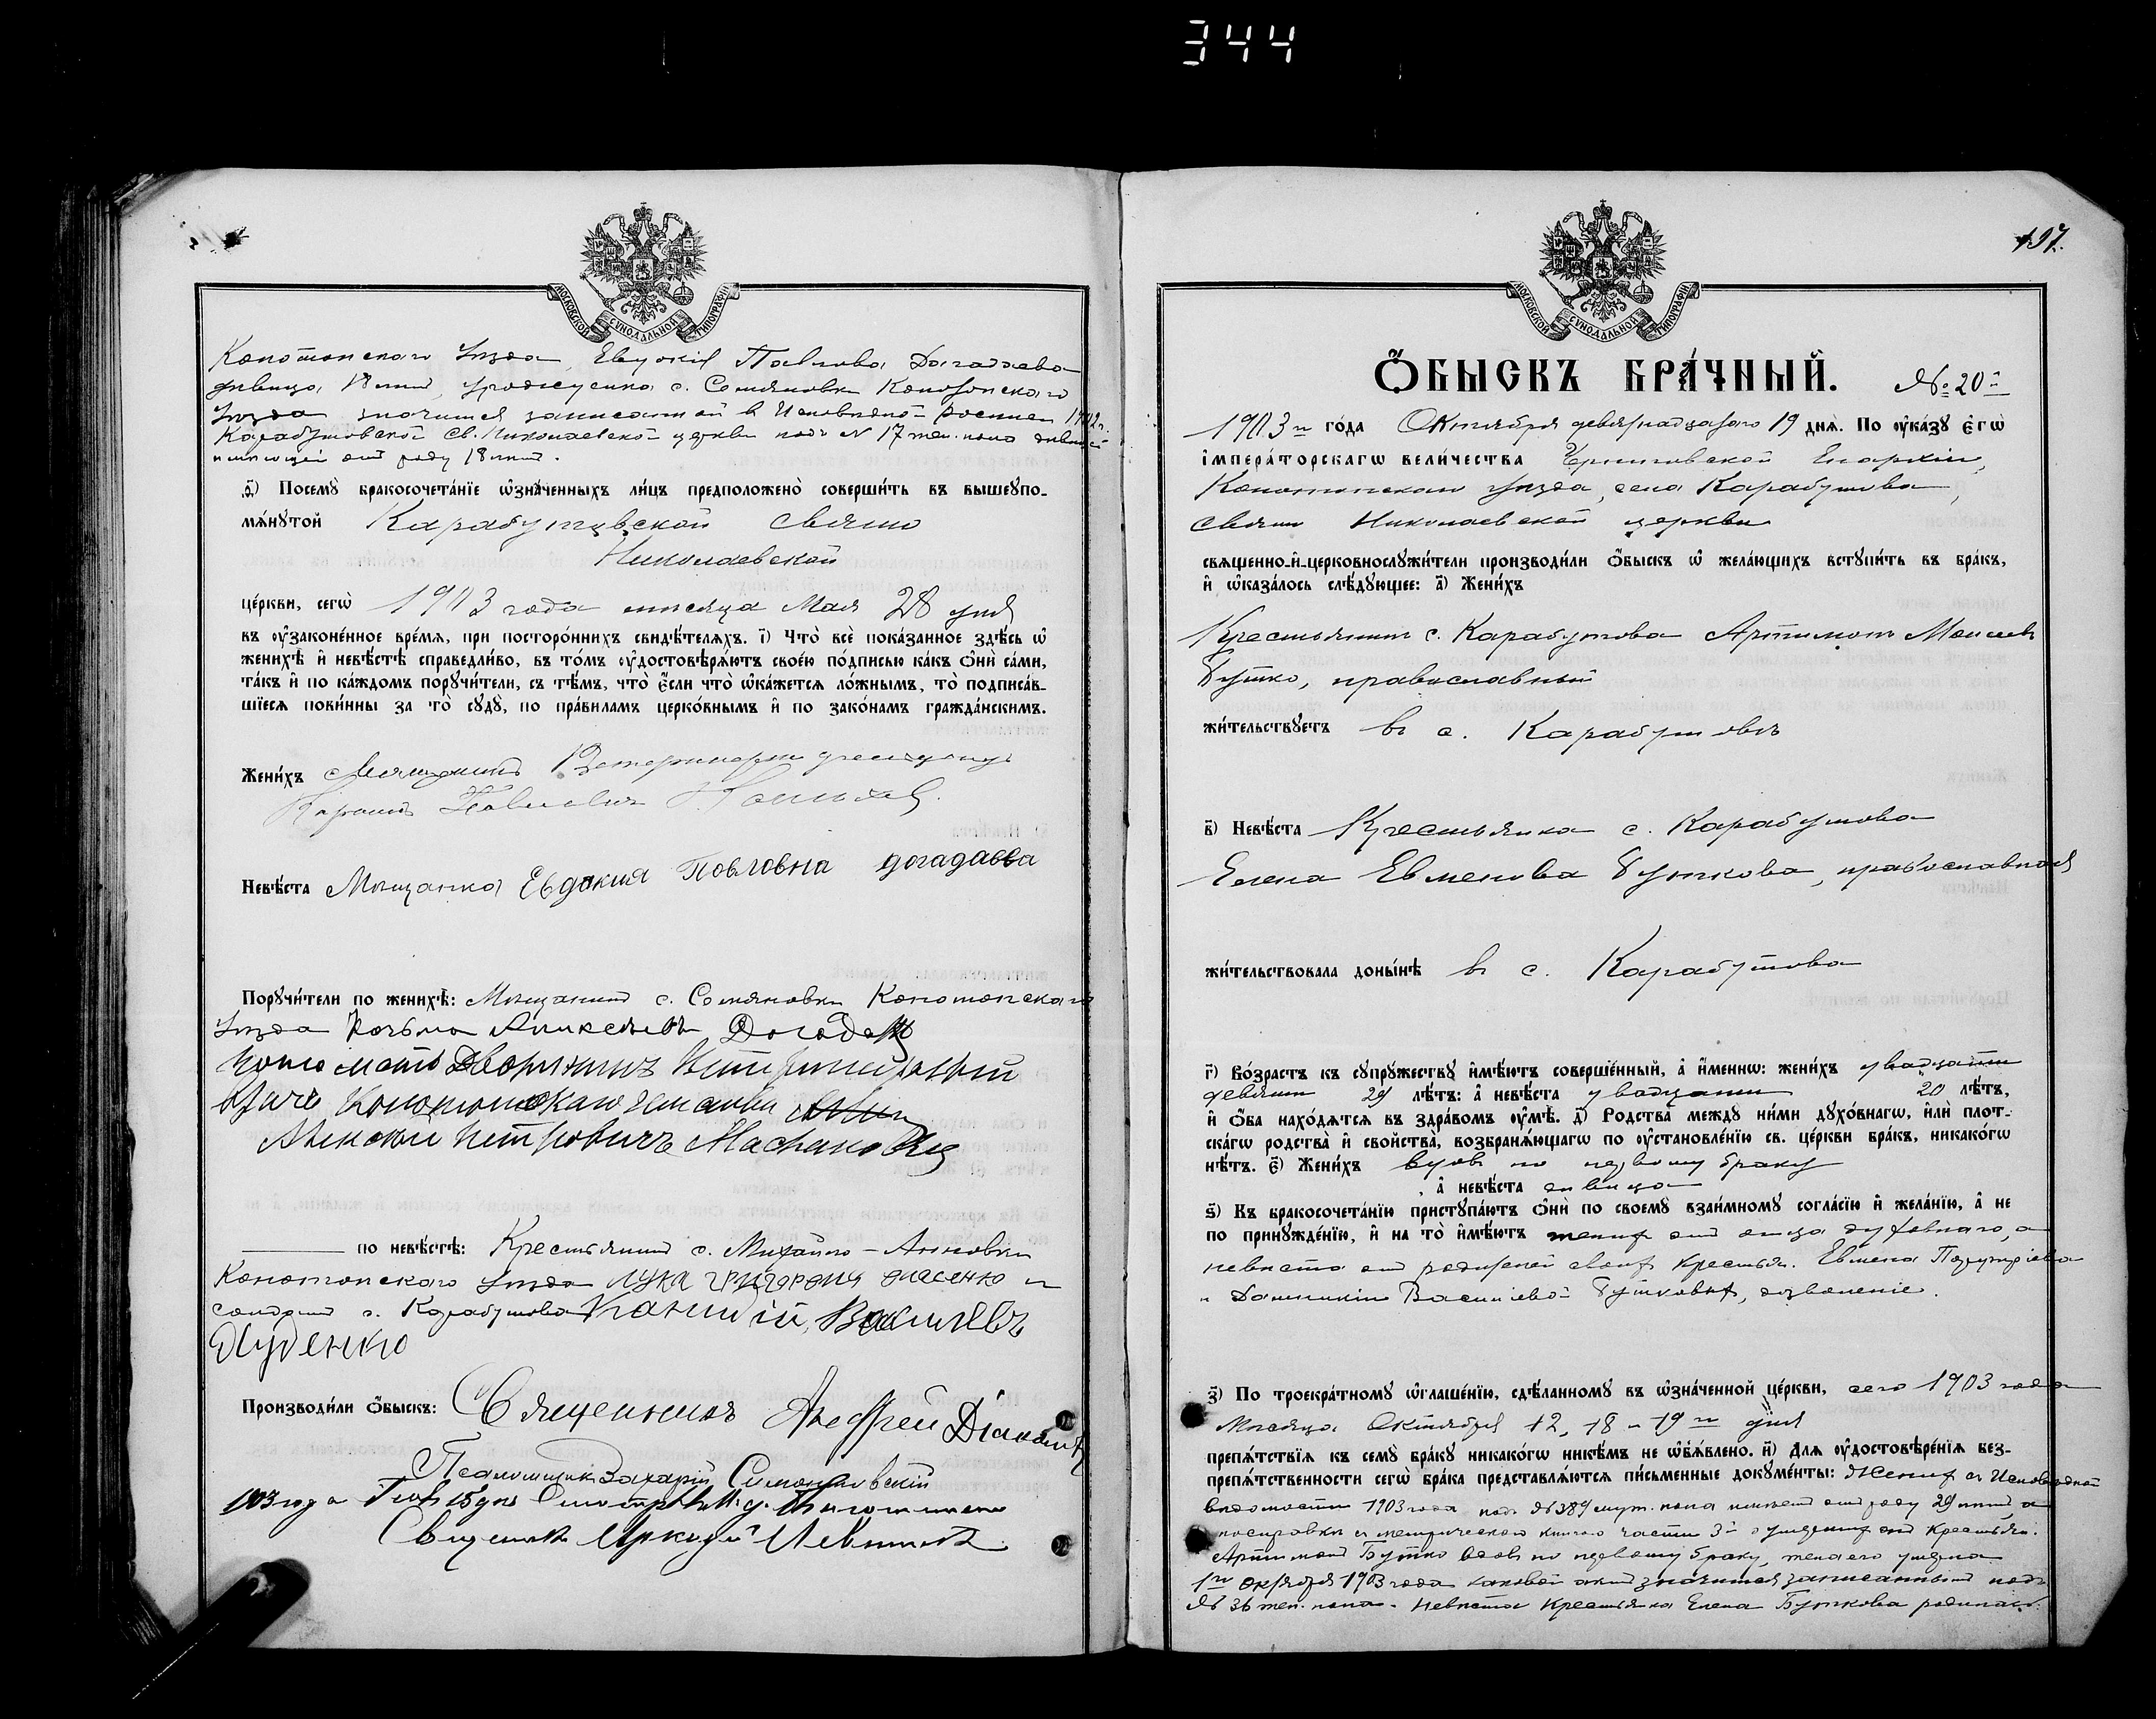 344
МОСКОВСКОЙ СѴНОДАЛЬНОЙ ТИПОГРАФІИ
Конотопскаго уѣзда, Евдокія Павлова Догадаева
дѣвица 18 лѣтъ, уроженка с. Семяновки Конотопскаго
уѣзда значится записанной в Исповѣдной росписи 1902 г.
Карабутовской Св. Николаевской церкви подъ № 17 жен. пола
имѣющей отъ роду 18 лѣтъ.
ѳ҃) Посемꙋ̀ бракосочета́нїе ѡ҆зна́ченныхъ ли́цъ предположено̀ соверши́ть въ вышеꙋпо-
мѧ́нꙋтой Карабутовской свято
Николаевской
це́ркви, сегѡ̀ 1903 года мѣсяца Мая 28 дня
въ ᲂу҆законе́нное вре́мѧ, при посторо́ннихъ свидѣ́телѧхъ. і҃) Что̀ всѐ пока́занное здѣ́сь ѡ҆
женихѣ̀ и҆ невѣ́стѣ справедли́во, въ то́мъ ᲂу҆достовѣрѧ́ютъ свое́ю по́дписью ка́къ ѻ҆нѝ са́ми,
та́къ и҆ по ка́ждомъ порꙋчи́тели, съ тѣ́мъ, что̀ є҆́сли что̀ ѡ҆ка́жетсѧ ло́жнымъ, то̀ подписа́в-
шїесѧ пови́нны за то̀ сꙋдꙋ̀, по пра́виламъ церко́внымъ и҆ по зако́намъ гражда́нскимъ.
Жени́хъ
Павловичъ
Невѣ́ста Мѣщанка Евдокия Повловна догадаева
Порꙋчи́тели по женихѣ̀: Мѣщанинъ с. Семяновки Конотопскаго
уѣзда Козьма Аликсѣевъ
Дворянинъ
врачъ
Петровичъ
по невѣ́стѣ: Крестьянинъ с. Михайло-Анновки
Конотопскаго уѣзда лука григориев власенко и
с. Карабутова Васильевъ
Руденко
Производи́ли ѻ҆́быскъ: Священникъ Андрей Діаконъ
Псаломщикъ Захарій
1903 года
Священникъ
197.
МОСКОВСКОЙ СѴНОДАЛЬНОЙ ТИПОГРАФІИ
Ѻ҆́БЫСКЪ БРА́ЧНЫЙ. № 20й
1903 го го́да Октября девятнадцатаго 19 днѧ̀. По ᲂу҆ка́зꙋ є҆гѡ̀
і҆мпера́торскагѡ вели́чества Черниговской Епархіи,
Конотопскаго уѣзда, села Карабутова,
свято Николаевской церкви
свѧще́нно-и҆-церковнослꙋжи́тели производи́ли ѻ҆́быскъ ѡ҆ жела́ющихъ встꙋпи́ть въ бра́къ,
и҆ ѡ҆каза́лось слѣ́дꙋющее: а҃) Жени́хъ
Крестьянинъ с. Карабутова Артимонъ Моисеевъ
Бутко, православный
жи́тельствꙋетъ въ с. Карабутовѣ
в҃) Невѣ́ста Крестьянка с. Карабутова
Елена Евменова Буткова, православная
жи́тельствовала доны́нѣ въ с. Карабутова
г҃) Во́зрастъ къ сꙋпрꙋ́жествꙋ и҆мѣ́ютъ соверше́нный, а҆ и҆́меннѡ: жени́хъ двадцати
девяти 29 лѣ́тъ: а҆ невѣ́ста двадцати 20 лѣ́тъ,
и҆ ѻ҆́ба нахо́дѧтсѧ въ здра́вомъ ᲂу҆мѣ̀. д҃) Родства̀ междꙋ̀ ни́ми дꙋхо́внагѡ, и҆лѝ пло́т-
скагѡ родства̀ и҆ свойства̀, возбранѧ́ющагѡ по ᲂу҆становле́нїю св. це́ркви бра́къ, никако́гѡ
нѣ́тъ. є҃) Жени́хъ вдовъ по первому браку
, а҆ невѣ́ста дѣвица
ѕ҃) Къ бракосочета́нїю пристꙋпа́ютъ ѻ҆нѝ по своемꙋ̀ взаи́мномꙋ согла́сїю и҆ жела́нїю, а҆ не
по принꙋжде́нїю, и҆ на то̀ и҆мѣ́ютъ женихъ отъ отца духовнаго, а
невѣста отъ родителей своихъ крестьян. Евмена
и Васильевой Бутковыхъ, дозволеніе.
з҃) По троекра́тномꙋ ѡ҆глаше́нїю, сдѣ́ланномꙋ въ ѡ҆зна́ченной це́ркви, сего 1903 года
Мѣсяца Октября 12, 18 и 19го дня
препѧ́тствїѧ къ семꙋ̀ бра́кꙋ никако́гѡ никѣ́мъ не ѡ҆бъѧ́влено. и҃) Длѧ ᲂу҆достовѣре́нїѧ без-
препѧ́тственности сегѡ̀ бра́ка представлѧ́ютсѧ пи́сьменные докꙋме́нты: Женихъ въ Исповѣдной
вѣдомости 1903 года подъ № 389 муж. пола имѣетъ отъ роду 29 лѣтъ, а
метрической книгѣ части 3й
Артимонъ Бутко вдовъ по первому браку, жена его умерла
1го октября 1903 года каковой актъ значится записаннымъ подъ
№ 36 жен. пола. Невѣста крестьянка Елена Буткова родилась